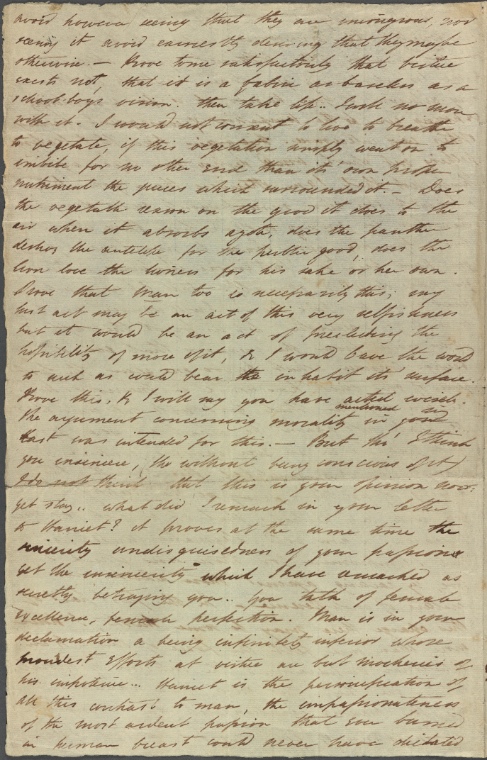 avoid however seeing that they are incongruous, nor
seeing it avoid earnestly desiring that they may be
otherwise. — Prove to me satisfactorily that virtue
exists not, that it is a fabric as baseless as a
school-boys vision. then take life. I seek no more
with it. I would not consent to live to breathe
to vegetate, if this vegetation simply went on to
imbibe for no other end than its own proper
nutriment the juices which surrounded it — Does
the vegetable reason on the good it does to the
air when it absorbs azote, does the panther
destroy the antelope for the public good, does the
lion love the lioness for his sake or her own.
Prove that Man too is necessarily this; my
last act may be an act of this very selfishness
but it would be an act of precluding the
possibility of more of it, & I would leave the world
to such as could bear to inhabit its surface.
Prove this, & I will say you have acted wisely.
The argument concerning morality mentioned in your
last was intended for this. — But tho' I think
you insincere, (tho without being conscious of it)
I do not think that this is your opinion now:
yet stay.. what did I remark in your letter
to Harriet? it proves at the same time the
sincerity undisguisedness of your passions
yet the insincerity which I have remarked as
secretly betraying you.. You talk of female
excellence, female perfection. Man is in your
declamation a being infinitely inferior whose
proudest efforts at virtue are but mockeries of
his impotence... Harriet is the personification of
all this contrast to man, the impassionateness
of the most ardent passion that ever burned
in human breast could never have dictated